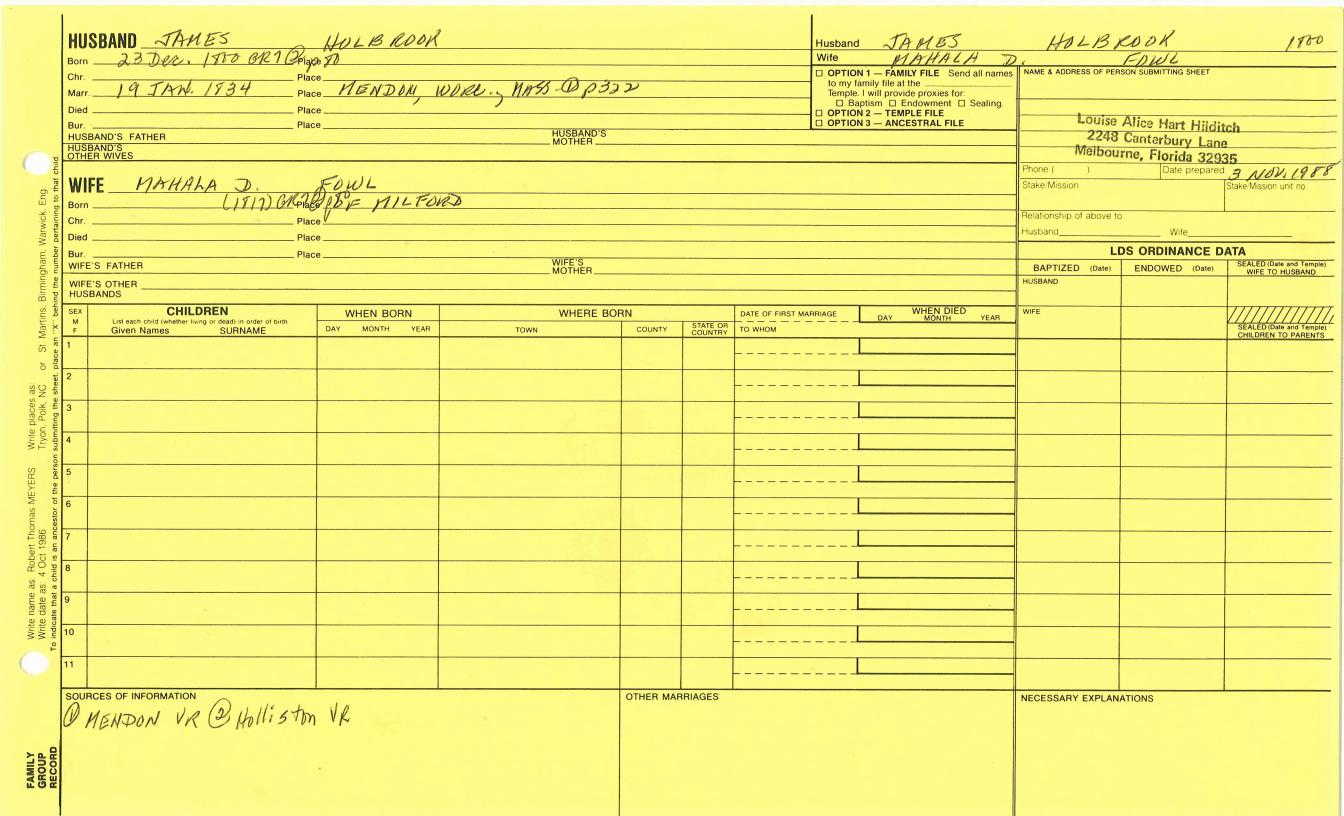 HUSBAND JAMES HOLBROOK
Born 23 Dec. 1800 GR7 ② p80 Place
Chr. Place
Marr. 19 JAN. 1834 Place MENDON, WORC., MASS. ① p322
Died Place
Bur. Place
HUSBAND'S FATHER HUSBAND'S MOTHER
HUSBAND'S OTHER WIVES
WIFE MAHALA D. FOWL
Born (1817) GR7 Place OF MILFORD
Chr. Place
Died Place
Bur. Place
WIFE'S FATHER WIFE'S MOTHER
WIFE'S OTHER HUSBANDS
Husband JAMES HOLBROOK 1800
Wife MAHALA D. FOWL
☐ OPTION 1 — FAMILY FILE Send all names
to my family file at the
Temple. I will provide proxies for:
☐ Baptism ☐ Endowment ☐ Sealing.
☐ OPTION 2 — TEMPLE FILE
☐ OPTION 3 — ANCESTRAL FILE
NAME & ADDRESS OF PERSON SUBMITTING SHEET
Louise Alice Hart Hilditch
2248 Canterbury Lane
Melbourne, Florida 32935
Phone ( ) Date prepared 3 NOV. 1988
Stake/Mission Stake/Mission unit no.
Relationship of above to
Husband Wife
LDS ORDINANCE DATA
BAPTIZED (Date) ENDOWED (Date) SEALED (Date and Temple) WIFE TO HUSBAND
HUSBAND
WIFE
SEALED (Date and Temple) CHILDREN TO PARENTS
SEX M F
CHILDREN
List each child (whether living or dead) in order of birth
Given Names SURNAME
WHEN BORN
DAY MONTH YEAR
WHERE BORN
TOWN COUNTY STATE OR COUNTRY
DATE OF FIRST MARRIAGE
TO WHOM
WHEN DIED
DAY MONTH YEAR
1
2
3
4
5
6
7
8
9
10
11
SOURCES OF INFORMATION
① MENDON VR ② Holliston VR
OTHER MARRIAGES
NECESSARY EXPLANATIONS
Write name as: Robert Thomas MEYERS Write places as: Tryon, Polk, NC or St Martins, Birmingham, Warwick, Eng.
Write date as: 4 Oct 1986
To indicate that a child is an ancestor of the person submitting the sheet, place an "X" behind the number pertaining to that child
FAMILY GROUP RECORD